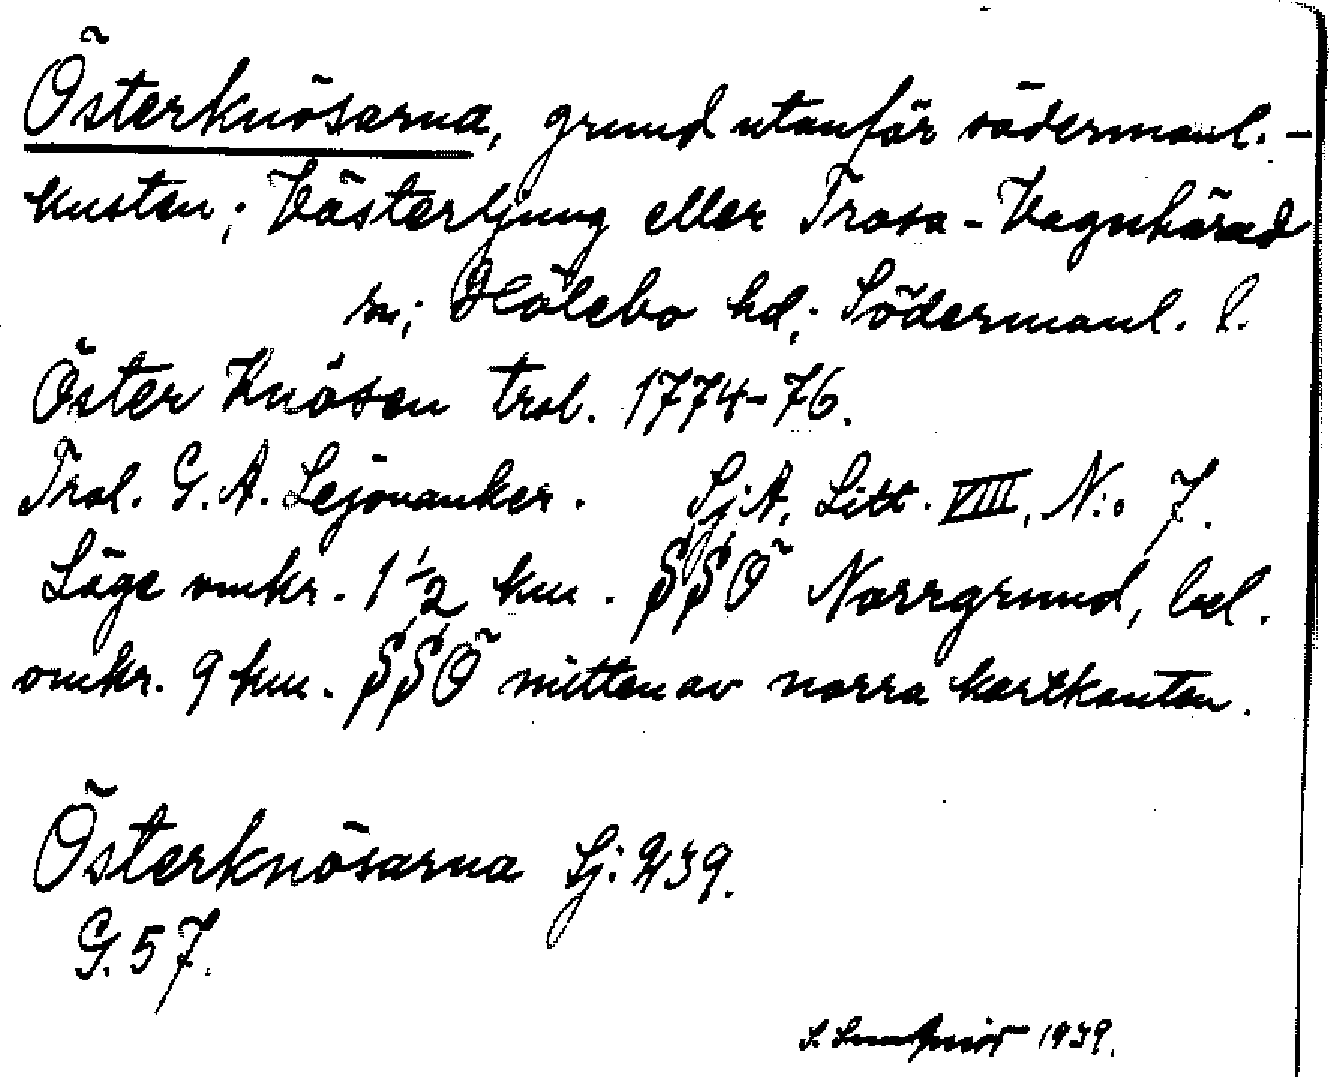 Österknösarna, grund utanför södermanl.-
kusten; Västerljung eller Trosa-Vagnhärad
sn; Hölebo hd; Södermanl. l.
Öster Knösen trol. 1774-76.
Trol. G. A. Lejonanker. SjA, Litt. VIII, N:o 7.
Läge omkr. 1 1/2 km. SSÖ Norrgrund, bel.
omkr. 9 km. SSÖ mitten av norra kartkanten.
Österknösarna Sj: 239.
G. 57.
1939.